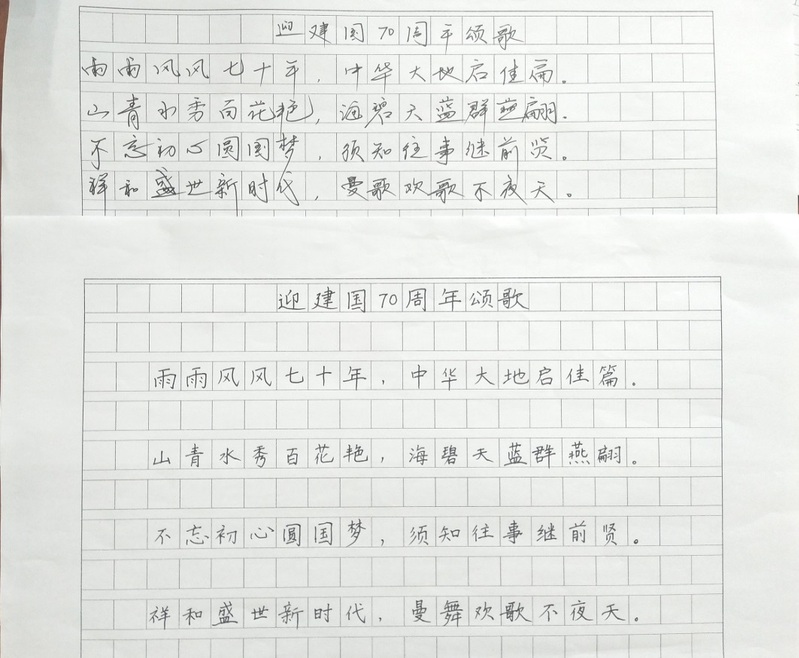 迎建国70周年颂歌
雨雨风风七十年，中华大地启佳篇。
山青水秀百花艳，海碧天蓝群燕翩。
不忘初心圆国梦，须知往事继前贤。
祥和盛世新时代，曼歌欢歌不夜天。
迎建国70周年颂歌
雨雨风风七十年，中华大地启佳篇。
山青水秀百花艳，海碧天蓝群燕翩。
不忘初心圆国梦，须知往事继前贤。
祥和盛世新时代，曼舞欢歌不夜天。